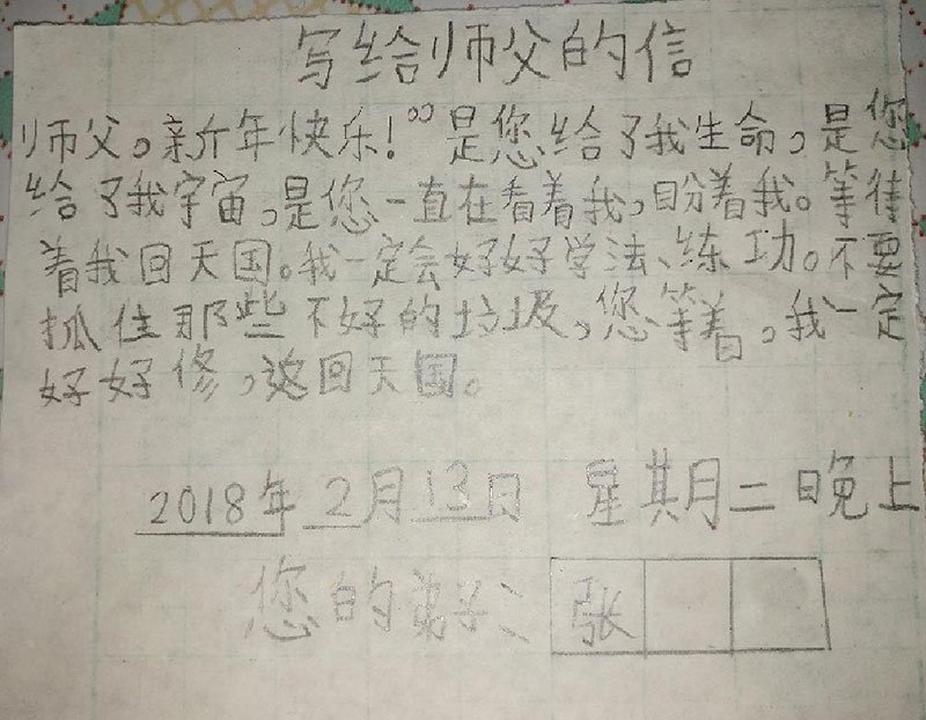 写给师父的信
师父。新年快乐！°°是您给了我生命，是您
给了我宇宙，是您一直在看着我，盼着我。等待
着我回天国。我一定会好好学法、练功。不要
抓住那些不好的垃圾，您等着，我一定
好好修，返回天国。
2018年2月13日 星期二晚上
您的弟子：张